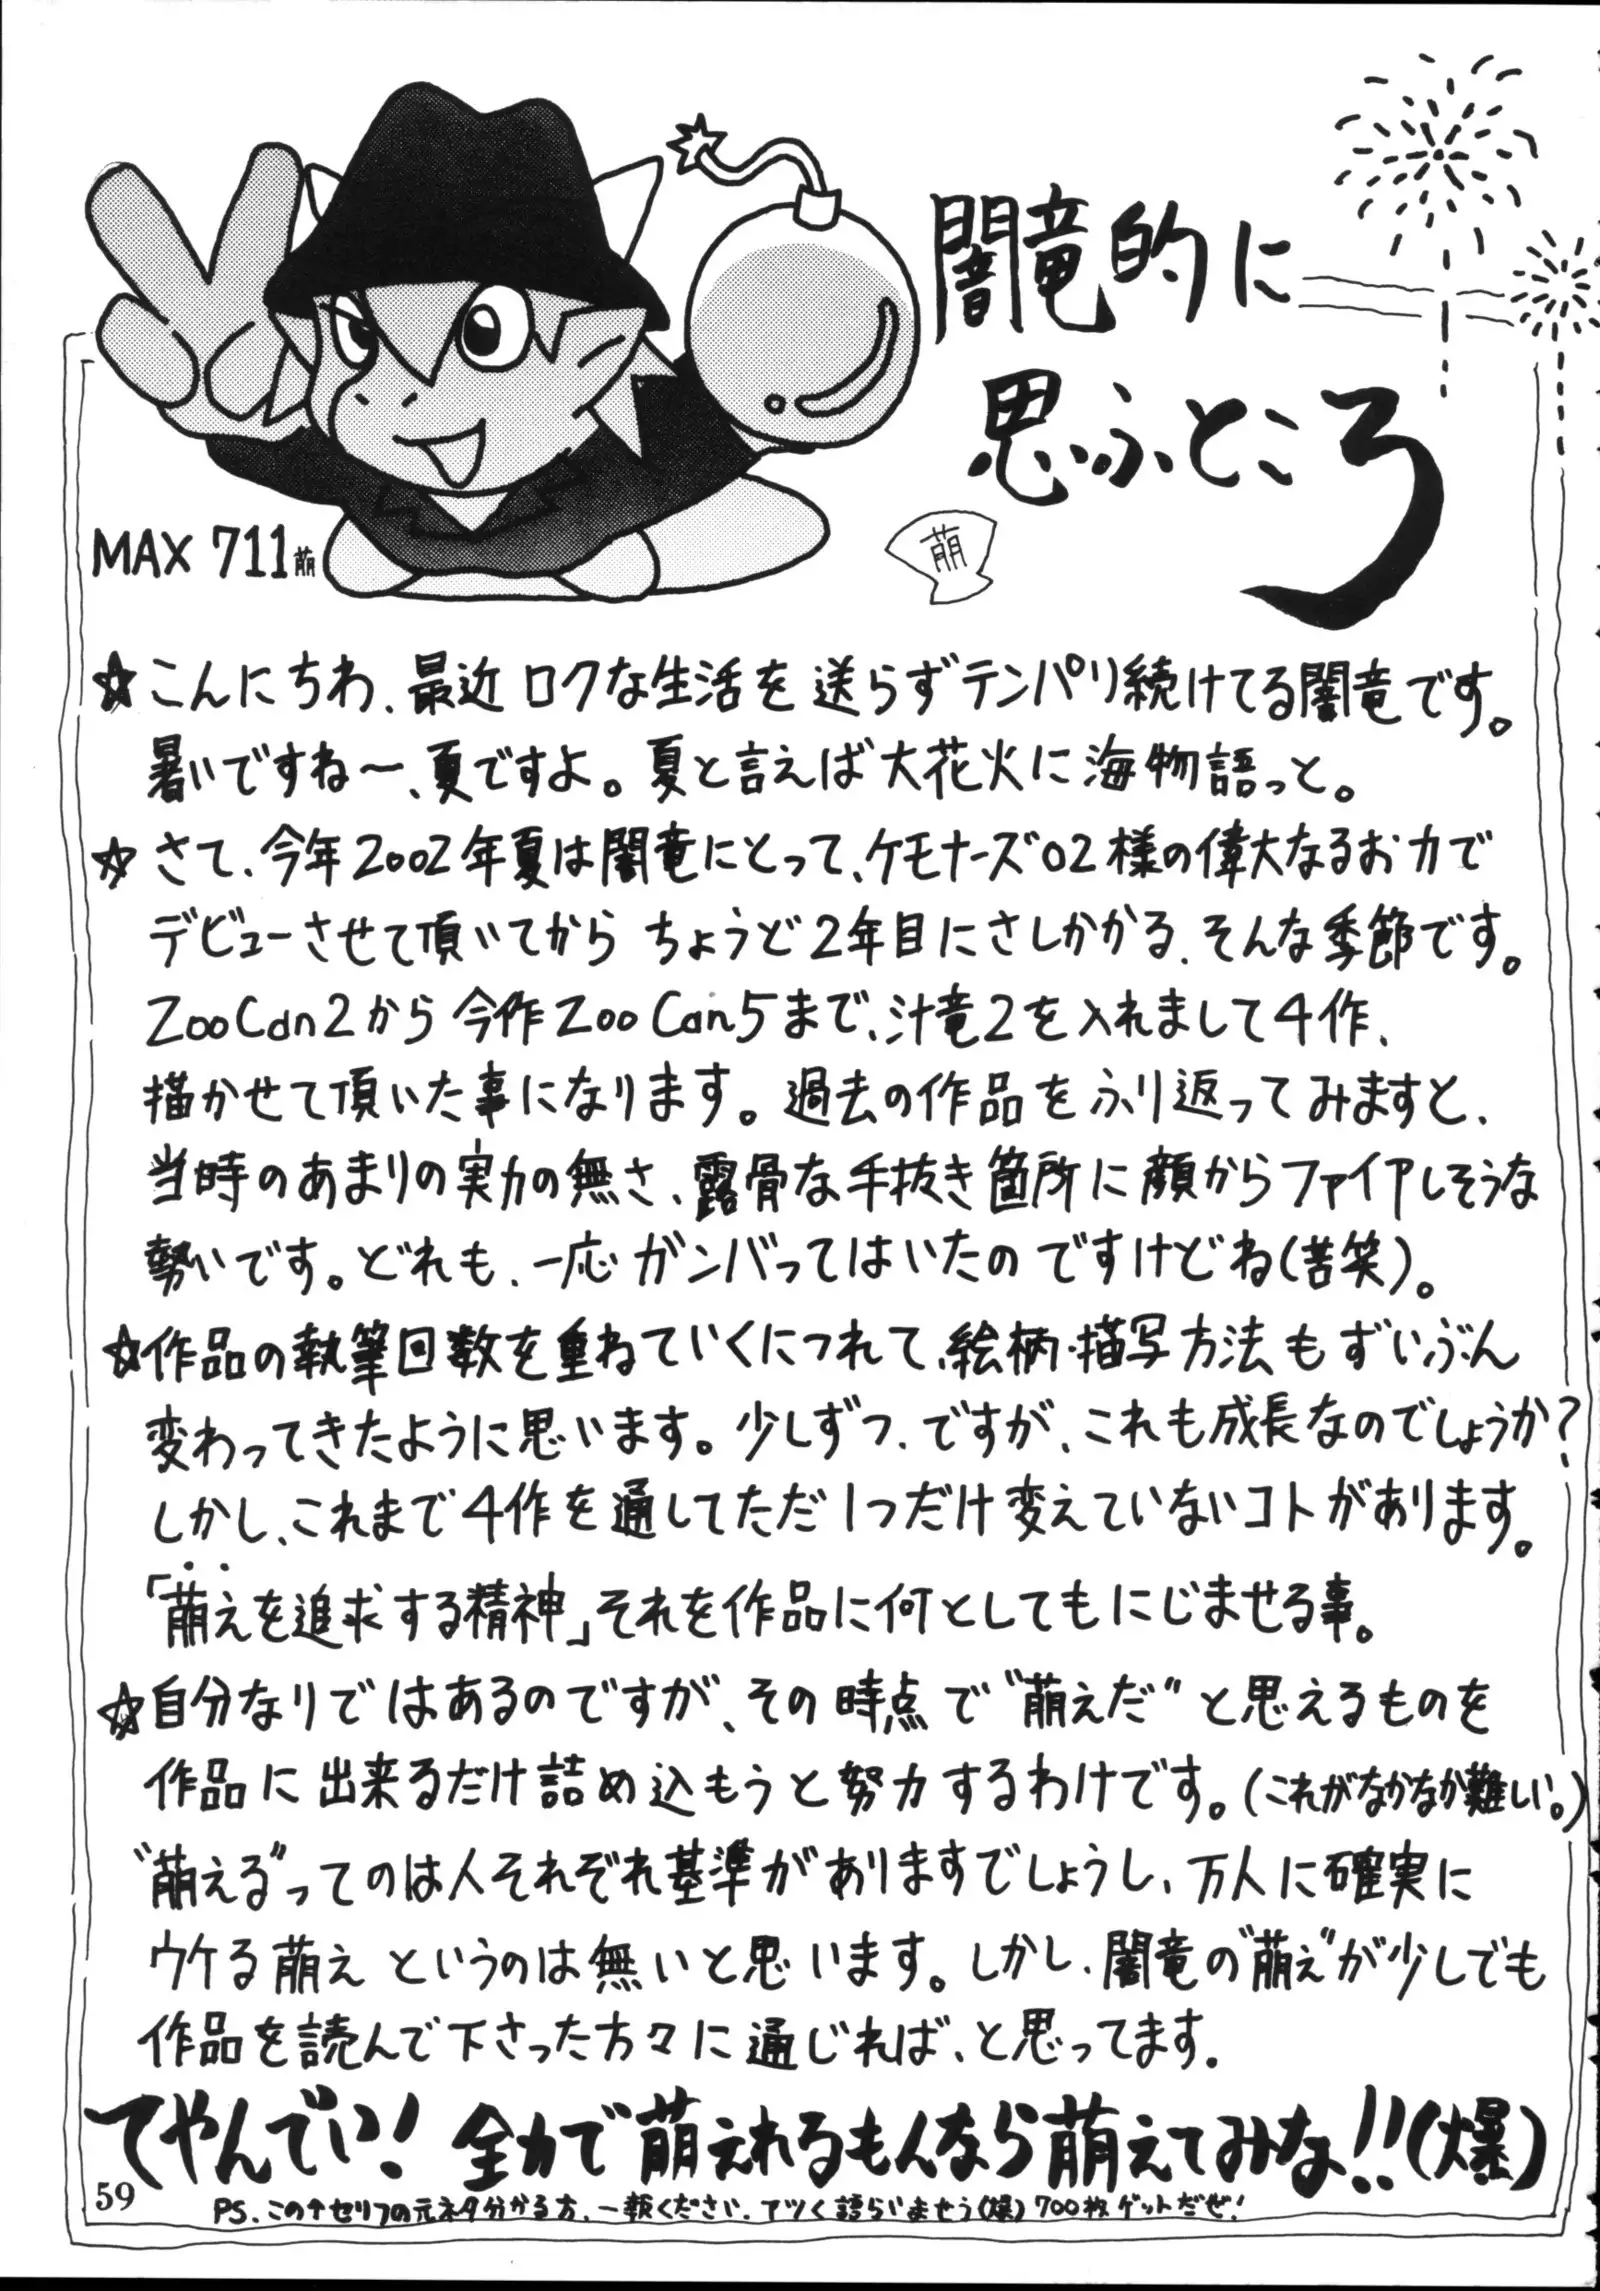 闇竜的に
思ふところ
萌
MAX 711萌
☆こんにちわ、最近ロクな生活を送らずテンパリ続けてる闇竜です。
暑いですね〜、夏ですよ。夏と言えば大花火に海物語っと。
☆さて、今年2002年夏は闇竜にとって、ケモナーズ02様の偉大なるお力で
デビューさせて頂いてからちょうど2年目にさしかかる、そんな季節です。
ZooCan2から今作ZooCan5まで、汁竜2を入れまして4作、
描かせて頂いた事になります。過去の作品をふり返ってみますと、
当時のあまりの実力の無さ、露骨な手抜き箇所に顔からファイアしそうな
勢いです。どれも、一応ガンバってはいたのですけどね(苦笑)。
☆作品の執筆回数を重ねていくにつれて、絵柄・描写方法もずいぶん
変わってきたように思います。少しずつ、ですが、これも成長なのでしょうか?
しかし、これまで4作を通してただ1つだけ変えていないコトがあります。
「萌えを追求する精神」それを作品に何としてもにじませる事。
☆自分なりではあるのですが、その時点で"萌えだ"と思えるものを
作品に出来るだけ詰め込もうと努力するわけです。(これがなかなか難しい。)
"萌える"ってのは人それぞれ基準がありますでしょうし、万人に確実に
ウケる萌えというのは無いと思います。しかし、闇竜の"萌え"が少しでも
作品を読んで下さった方々に通じれば、と思ってます。
てやんでい!全力で萌えれるもんなら萌えてみな!!(爆)
59
PS.この↑セリフの元ネタ分かる方、一報ください。アツく語らいませう(爆)700枚ゲットだぜ!